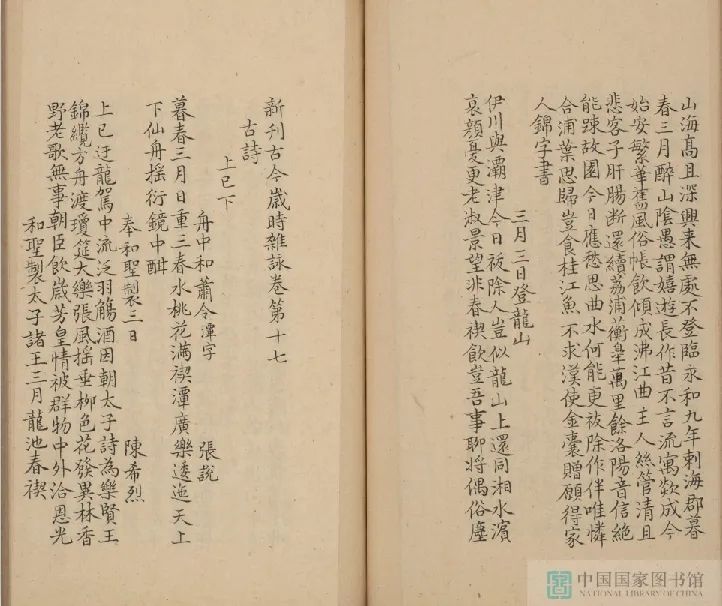 山海髙且深興来無處不登臨永和九年刺海郡暮
春三月醉山陰愚謂嬉遊長作昔不言流寓欻成今
始安繁華舊風俗帳飲傾成沸江曲主人絲管清且
悲客子肝腸斷還續荔浦蘅皋萬里餘洛陽音信絶
能踈故園今日應愁思曲水何能更被除作伴唯憐
合浦葉思歸豈食桂江魚不求漢使金囊贈願得家
人錦字書
三月三日登龍山
伊川與灞津今日被除人豈似龍山上還同湘水濱
哀顔憂更老淑景望非春禊飲豈吾事聊將偶俗塵
新刊古今歲時雜詠卷第十七
古詩
上巳下
舟中和蕭令潭字 張說
暮春三月日重三春水桃花滿禊潭廣樂逶迤天上
下仙舟摇衍鏡中酣
奉和聖製三日 陳希烈
上巳迂龍駕中流泛羽觴酒因朝太子詩為樂賢王
錦纜方舟渡瓊筵大樂張風摇垂柳色花發異林香
野老歌無事朝臣飲歲芳皇情被群物中外洽恩光
和聖製太子諸王三月龍池春禊
中国国家图书馆
NATIONAL LIBRARY OF CHINA